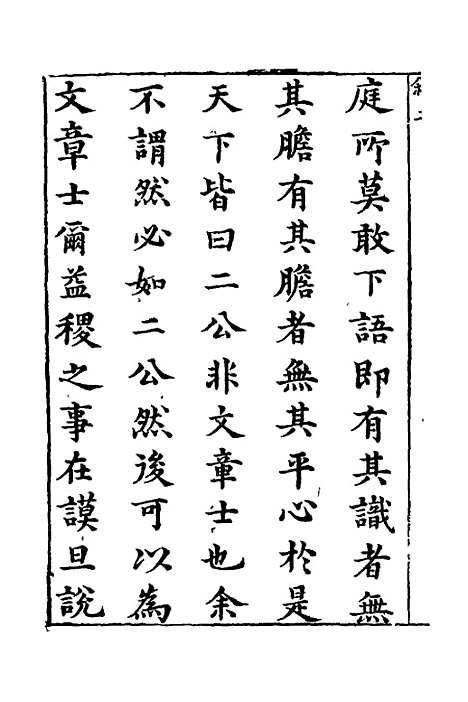 庭所莫敢下語即有其識者無
其膽有其膽者無其平心於是
天下皆曰二公非文章士也余
不謂然必如二公然後可以為
文章士爾益稷之事在謨旦說